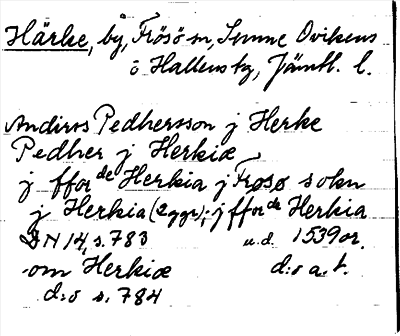 Härke, by, Frösö sn, Sunne Ovikens
o Hallens tg, Jämtl. l.
Andiros Pedhersson j Herke
Pedher j Herkiæ
j ffor de Herkia j Frøsø sokn
j Herkia (2 ggr); j ffor de Herkia
DN 14, s. 783 u.d. 1539 or.
om Herkiæ d:o a. t.
d:o s. 784